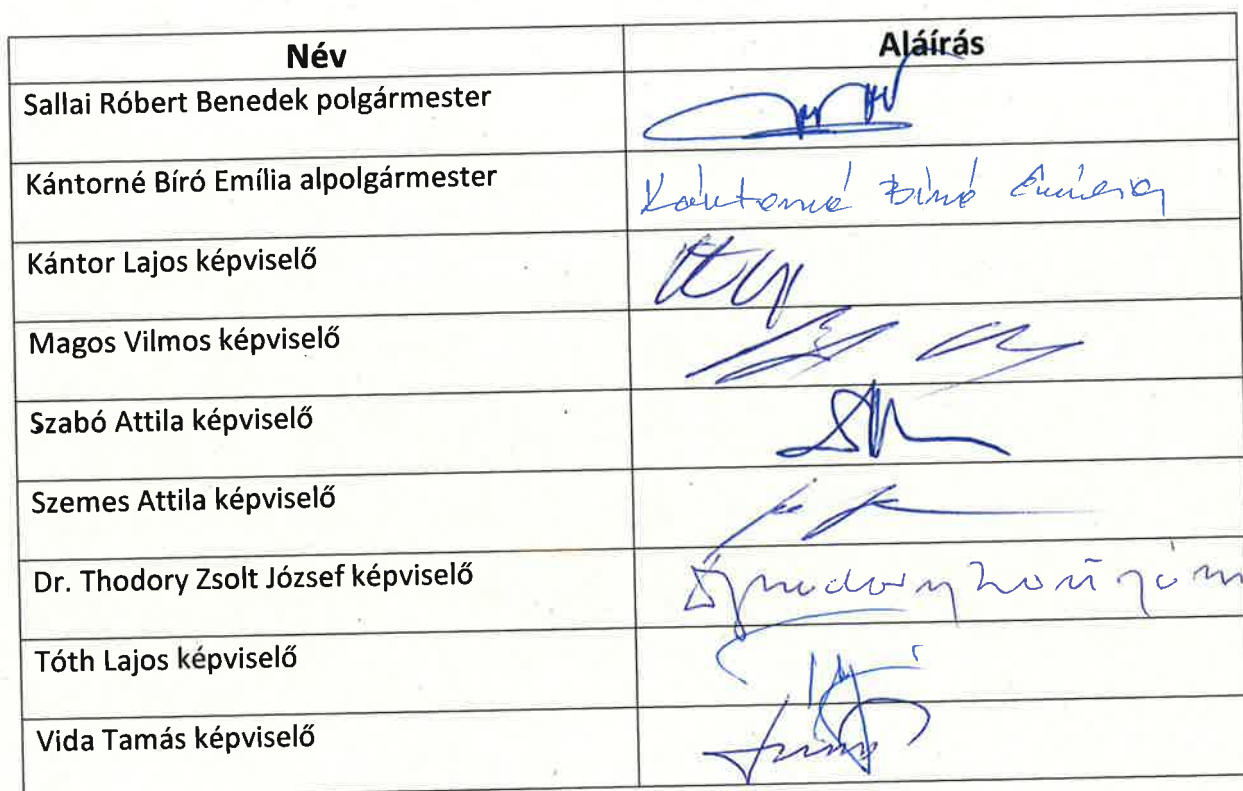 Név Aláírás
Sallai Róbert Benedek polgármester
Kántorné Bíró Emília alpolgármester Kántorné Bíró Emília
Kántor Lajos képviselő
Magos Vilmos képviselő
Szabó Attila képviselő
Szemes Attila képviselő
Dr. Thodory Zsolt József képviselő
Tóth Lajos képviselő
Vida Tamás képviselő